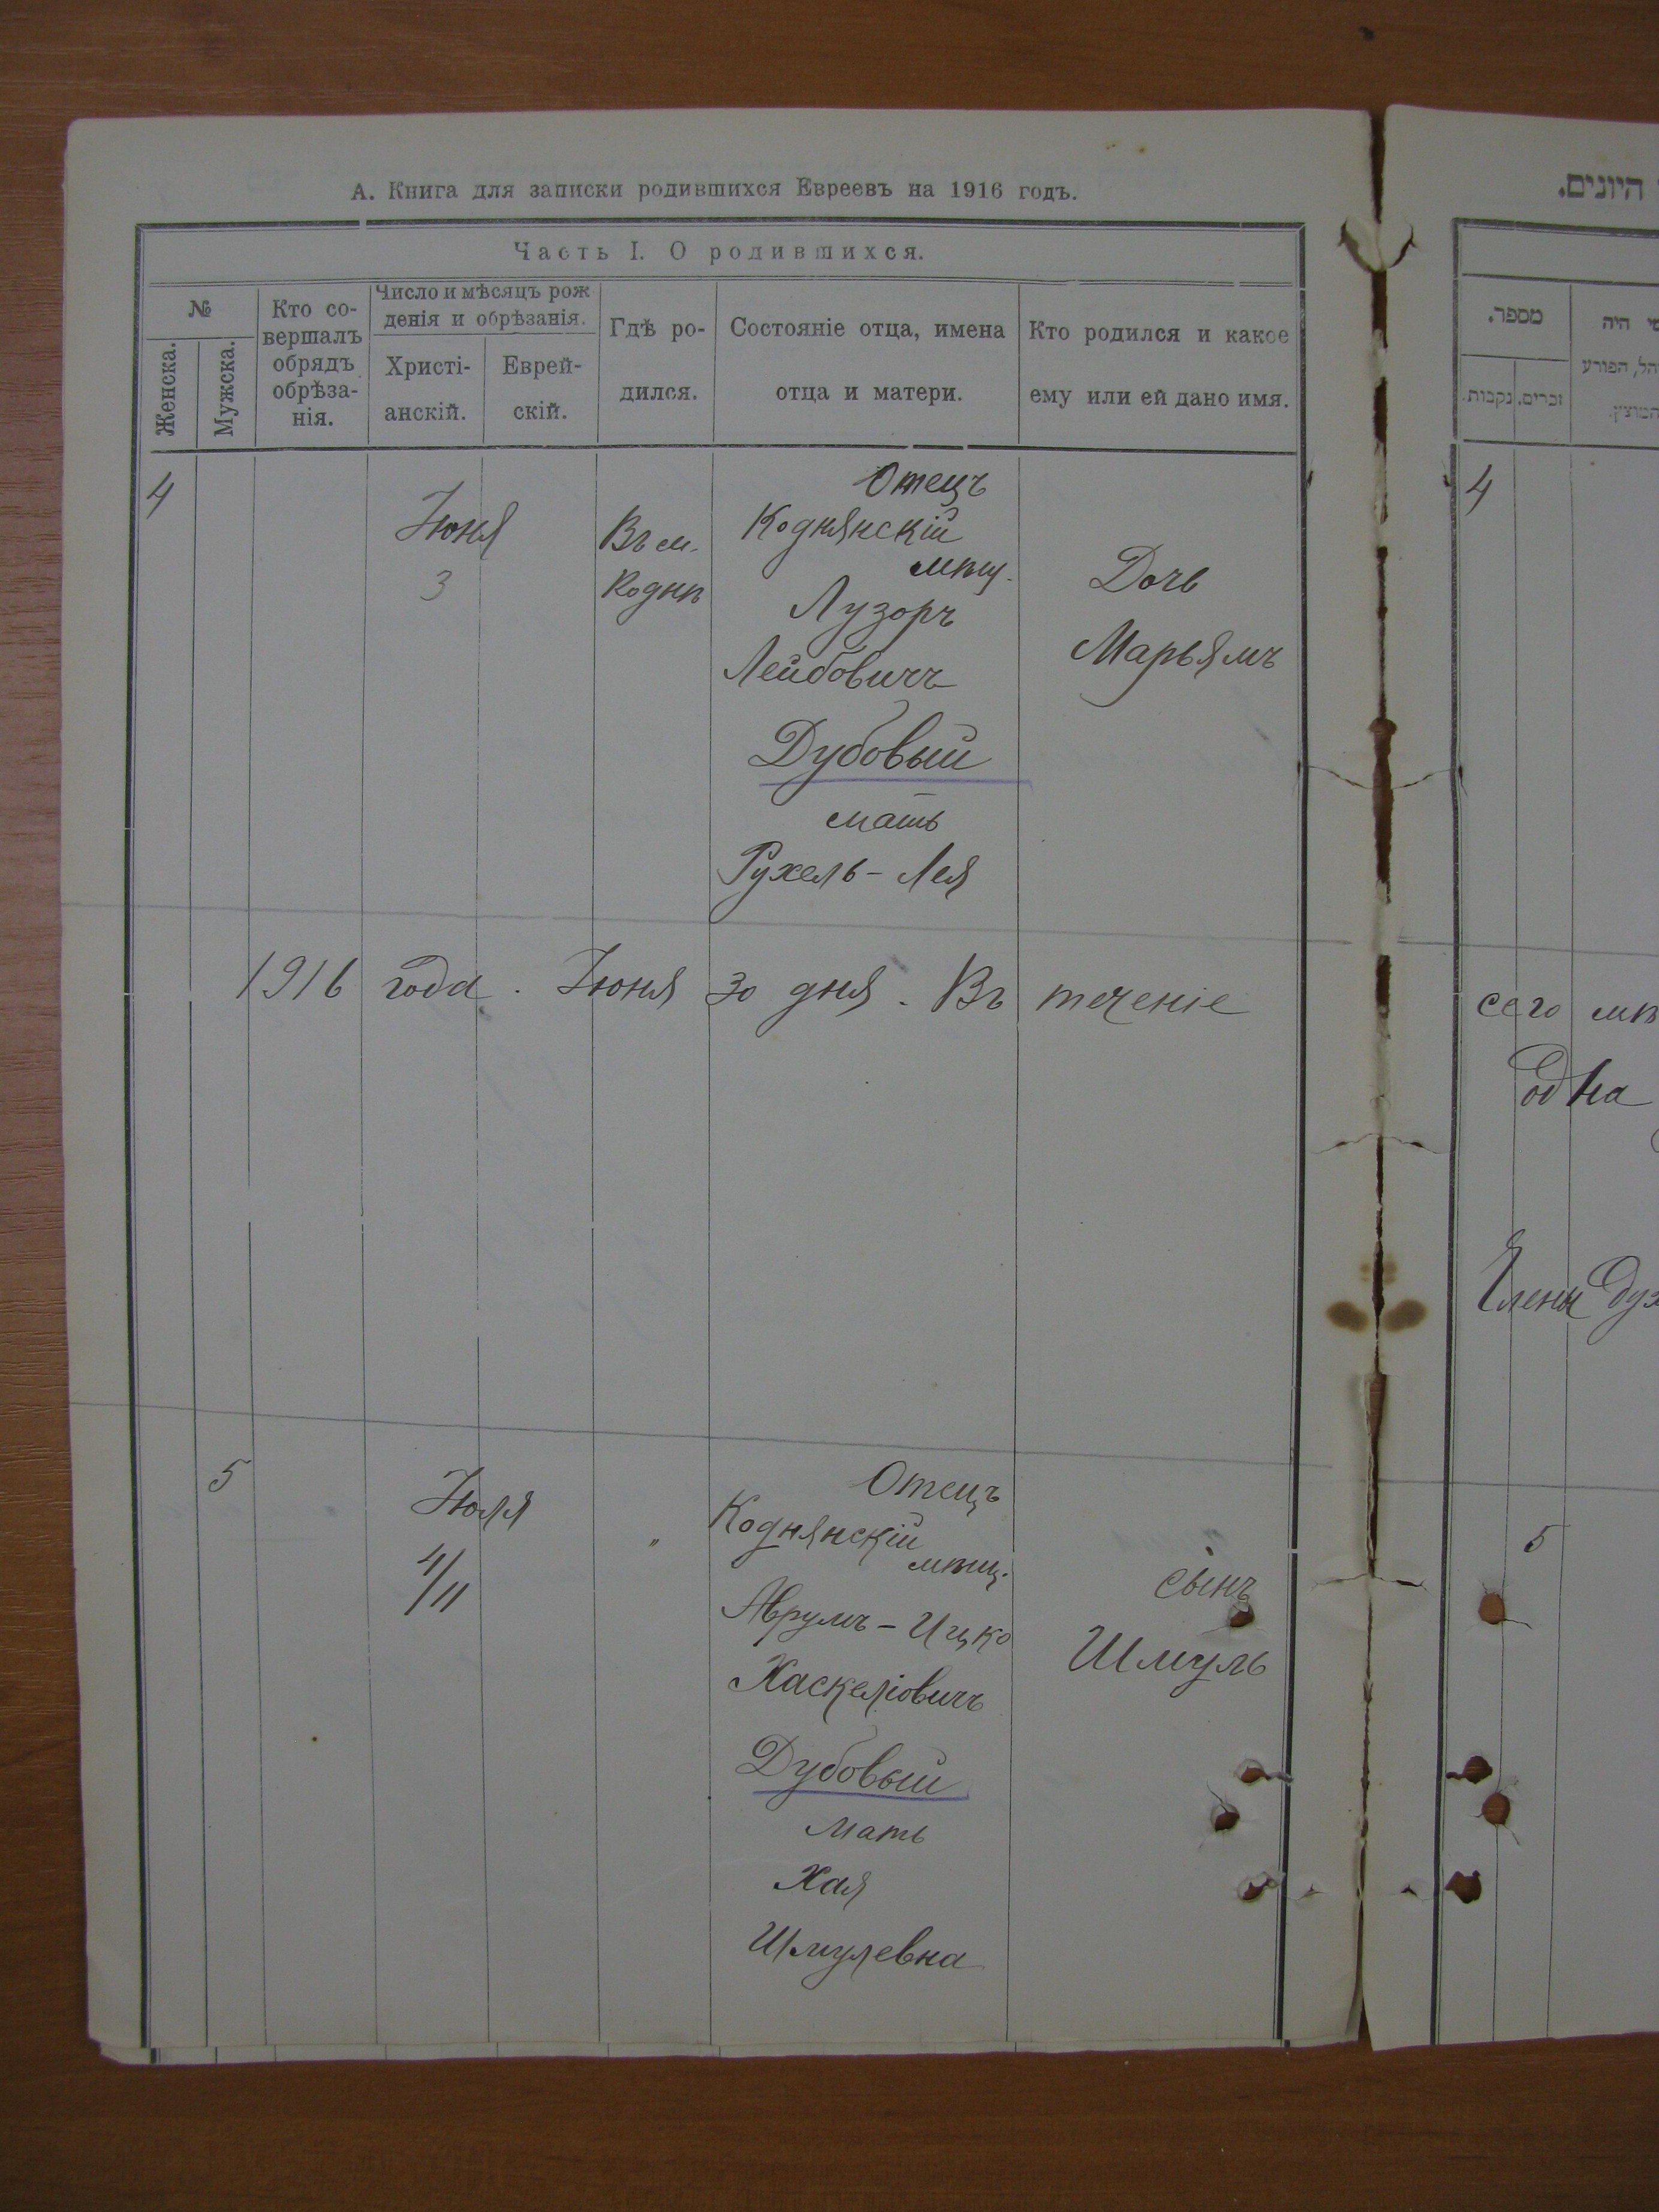 А. Книга для записки родившихся Евреевъ на 1916 годъ.
Часть I. О родившихся.
№
Женска.
Мужска.
Кто со-
вершалъ
обрядъ
обрѣза-
нія.
Число и мѣсяцъ рож
денія и обрѣзанія.
Христі-
анскій.
Еврей-
скій.
Гдѣ ро-
дился.
Состояніе отца, имена
отца и матери.
Кто родился и какое
ему или ей дано имя.
4
Іюня
3
Въ м.
Коднѣ
Отецъ
Коднянскій
мѣщ.
Лузоръ
Лейбовичъ
Дубовый
мать
Рухель-Лея
Дочь
Марьямъ
1916 года. Іюня 30 дня. Въ теченіе
5
Іюля
4/11
"
Отецъ
Коднянскій
мѣщ.
Аврумъ-Ицко
Хаскеліовичъ
Дубовый
мать
Хая
Шмулевна
сынъ
Шмуль
היונים.
מספר.
זכרים.
נקבות.
היה
הפורע
4
сего
одна
Члены
5